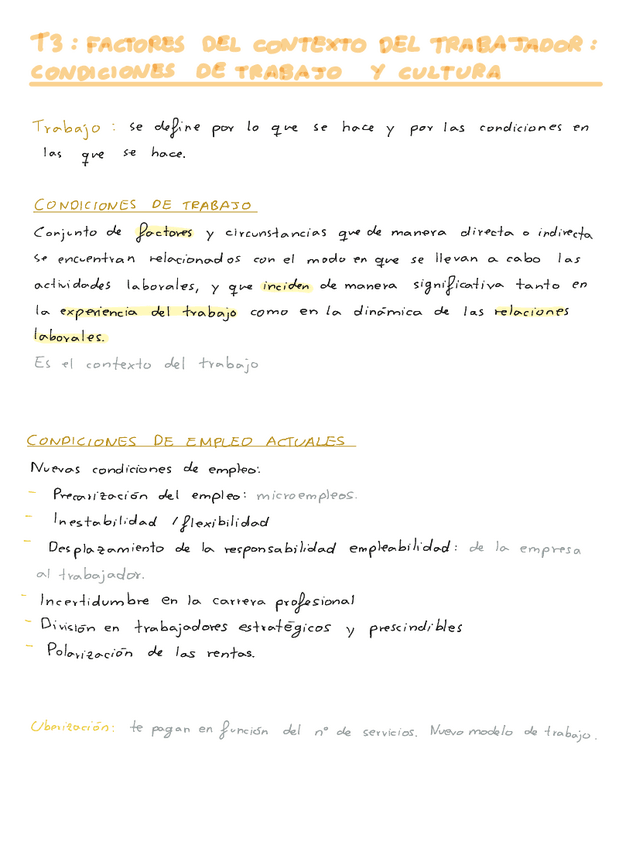 T3: FACTORES DEL CONTEXTO DEL TRABAJADOR:
CONDICIONES DE TRABAJO Y CULTURA
Trabajo: se define por lo que se hace y por las condiciones en
las que se hace.
CONDICIONES DE TRABAJO
Conjunto de factores y circunstancias que de manera directa o indirecta
se encuentran relacionados con el modo en que se llevan a cabo las
actividades laborales, y que inciden de manera significativa tanto en
la experiencia del trabajo como en la dinámica de las relaciones
laborales.
Es el contexto del trabajo
CONDICIONES DE EMPLEO ACTUALES
Nuevas condiciones de empleo:
- Precarización del empleo: microempleos.
- Inestabilidad / flexibilidad
- Desplazamiento de la responsabilidad empleabilidad: de la empresa
al trabajador.
- Incertidumbre en la carrera profesional
- División en trabajadores estratégicos y prescindibles
- Polarización de las rentas.
Uberización: te pagan en función del nº de servicios. Nuevo modelo de trabajo.